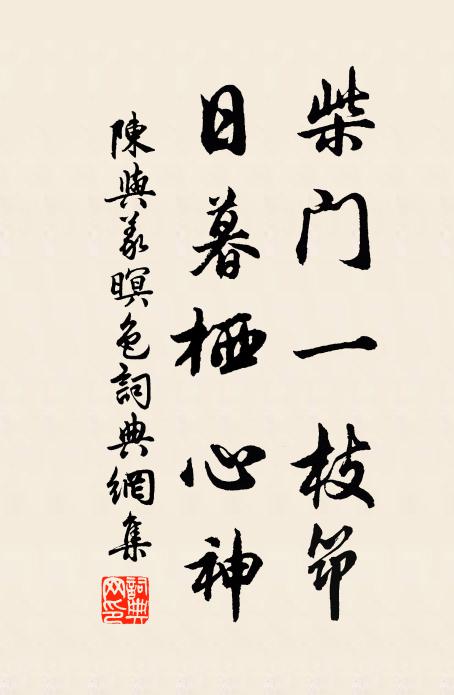 柴门一枝筇
日暮栖心神
陳與義暝色詞典網集
詞典
网印